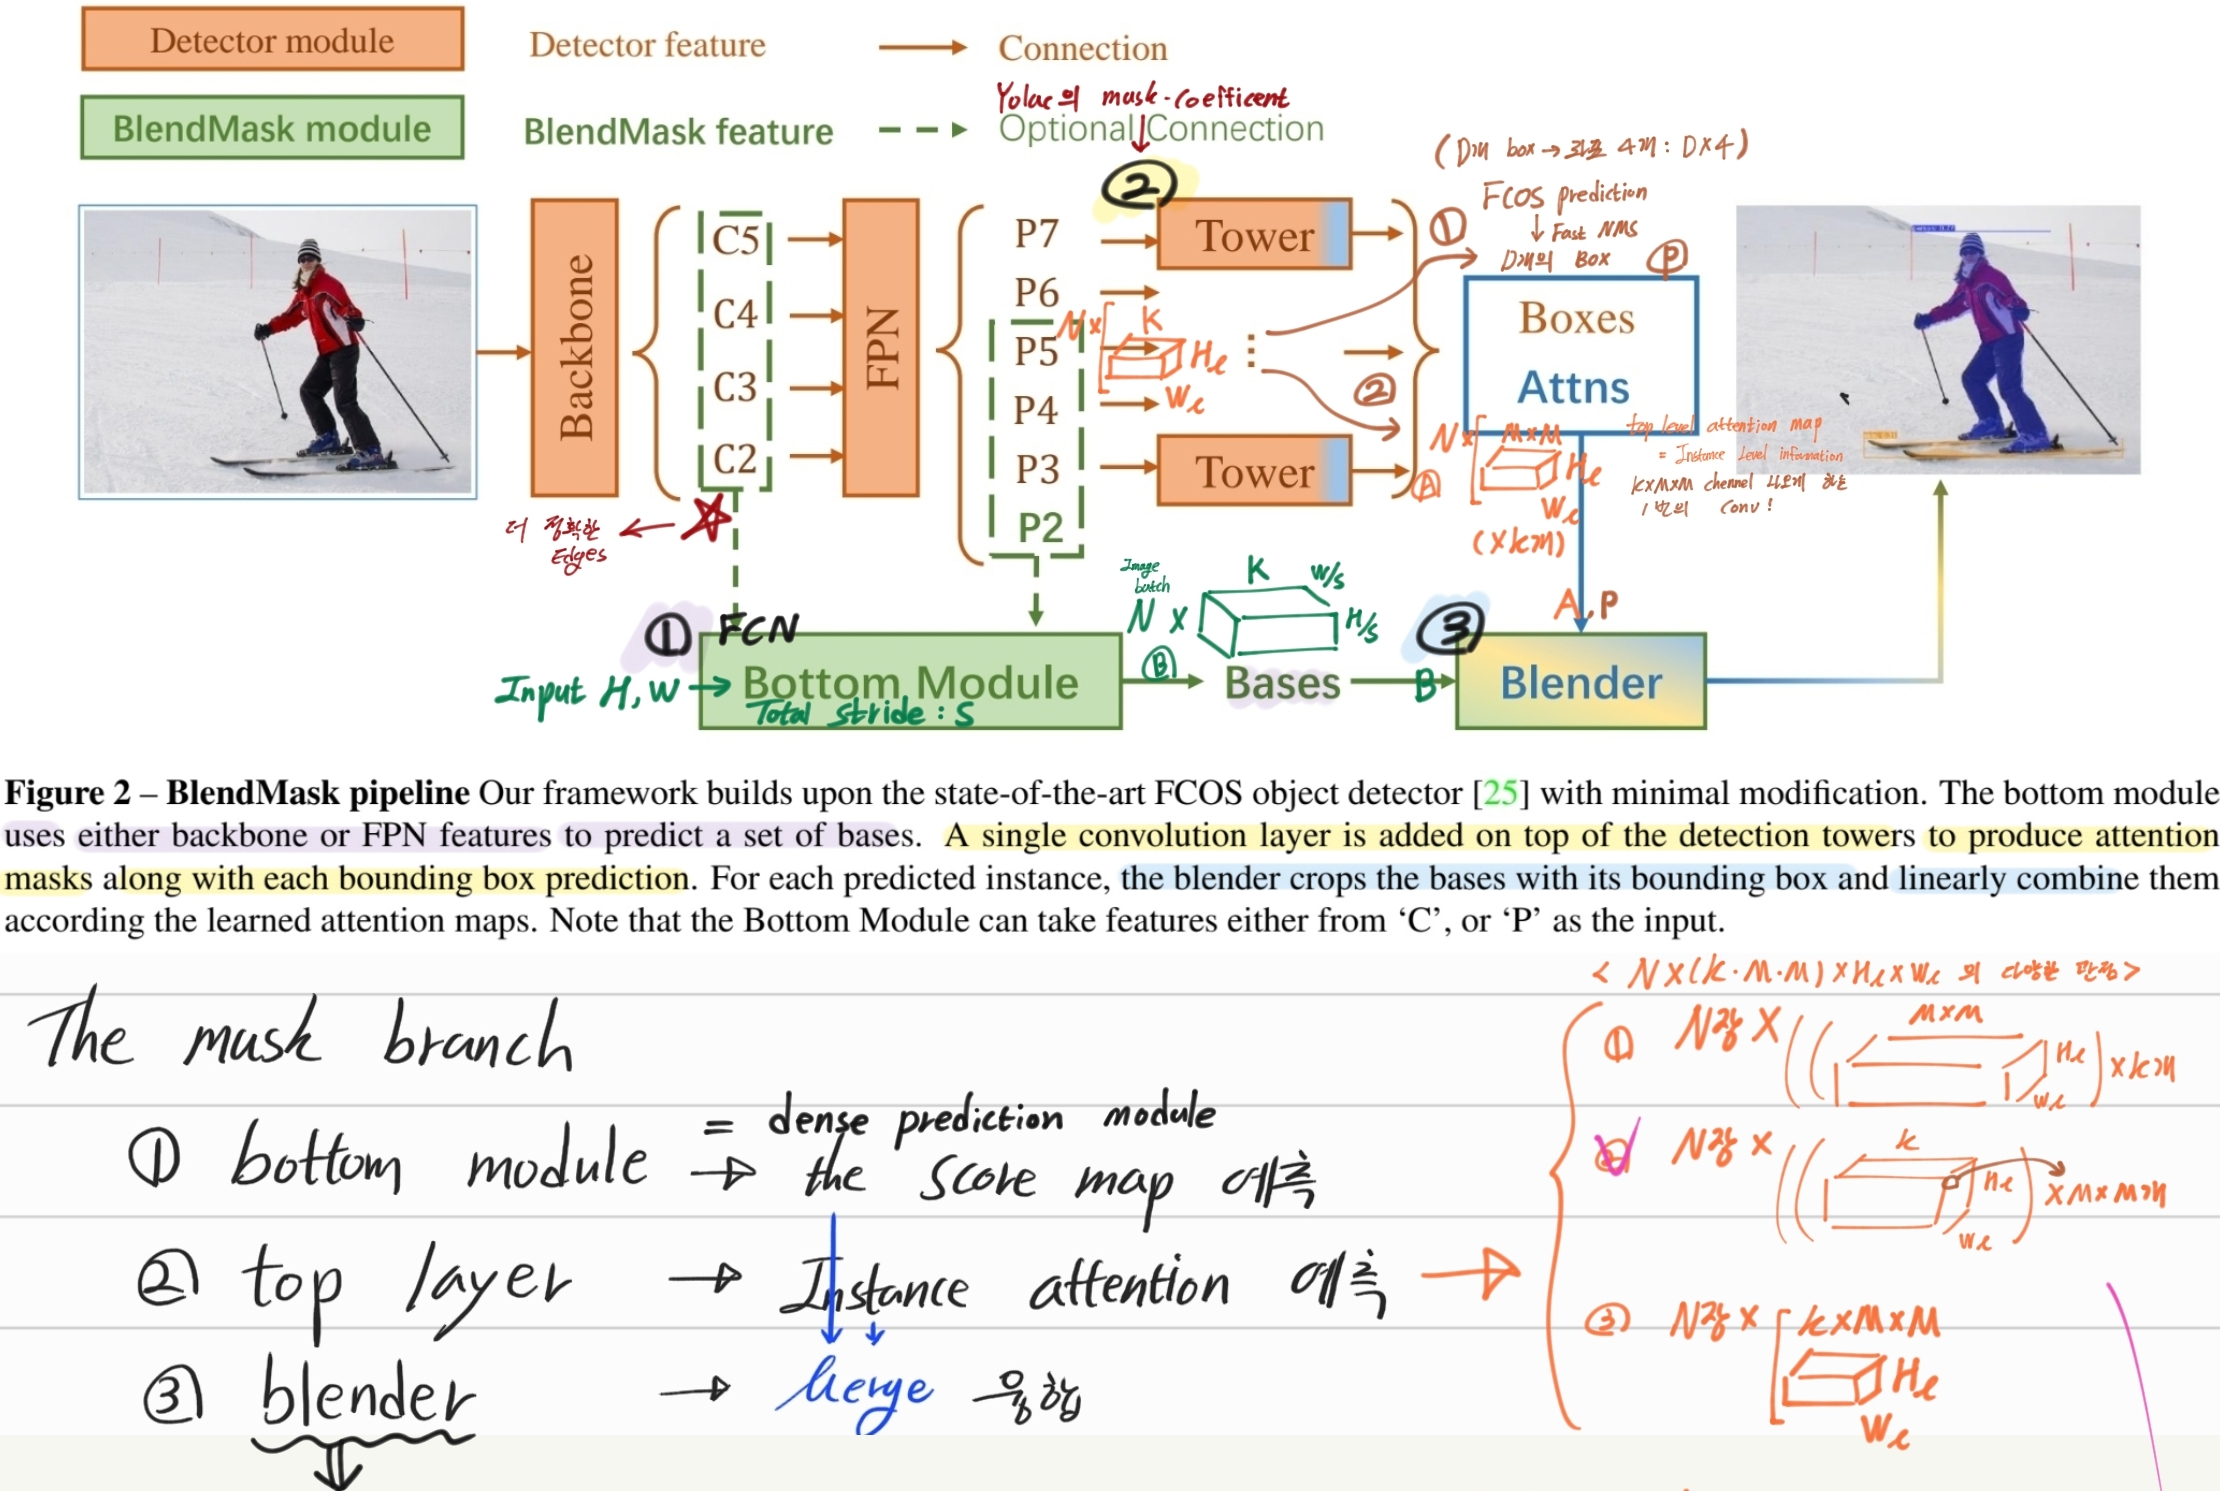 Detector module
Detector feature
Connection
Yolac의 mask-coefficent
BlendMask module
BlendMask feature
Optional Connection
(D개 box → 좌표 4개 : D×4)
②
FCOS prediction
↓ Fast NMS
D개의 Box
Ⓟ
①
Backbone
C5
C4
C3
C2
FPN
P7
P6
P5
P4
P3
P2
Tower
Tower
N×
K
Hℓ
Wℓ
②
Boxes
Attns
N×
M×M
Hℓ
Wℓ
(×K개)
Ⓐ
top level attention map
= Instance Level information
K×M×M channel 나오게 하는
1번의 Conv!
더 정확한
Edges
Image
batch
N ×
K
W/S
H/S
A, P
① FCN
③
Input H, W →
Bottom Module
Total stride : S
Ⓑ
Bases
B
Blender
Figure 2 – BlendMask pipeline Our framework builds upon the state-of-the-art FCOS object detector [25] with minimal modification. The bottom module
uses either backbone or FPN features to predict a set of bases. A single convolution layer is added on top of the detection towers to produce attention
masks along with each bounding box prediction. For each predicted instance, the blender crops the bases with its bounding box and linearly combine them
according the learned attention maps. Note that the Bottom Module can take features either from ‘C’, or ‘P’ as the input.
< N×(K·M·M)×Hℓ×Wℓ 의 다양한 관점>
The mask branch
① N장 ×
M×M
Hℓ
Wℓ
×K개
= dense prediction module
① bottom module → the score map 예측
② N장 ×
K
Hℓ
Wℓ
×M×M개
② top layer → Instance attention 예측 →
③ N장 ×
K×M×M
Hℓ
Wℓ
③ blender → Merge 융합